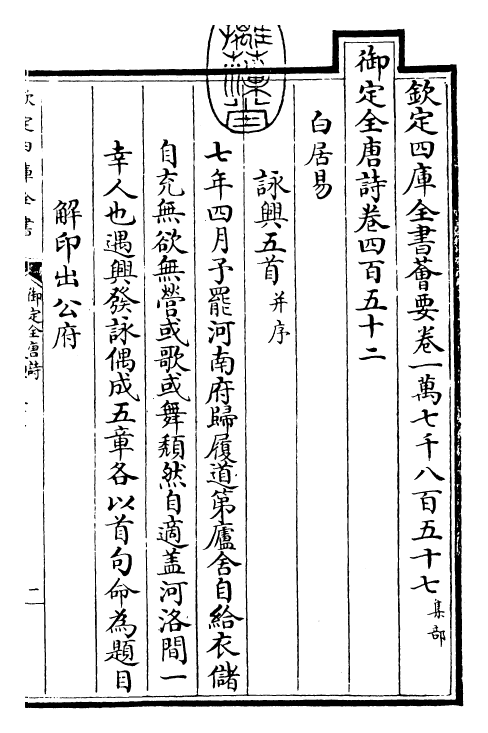 欽定四庫全書薈要卷一萬七千八百五十七 集部
御定全唐詩卷四百五十二
白居易
詠興五首 并序
七年四月予罷河南府歸履道第廬舍自給衣儲
自充無欲無營或歌或舞頹然自適盖河洛間一
幸人也遇興發詠偶成五章各以首句命為題目
解印出公府
欽定四庫全書
御定全唐詩